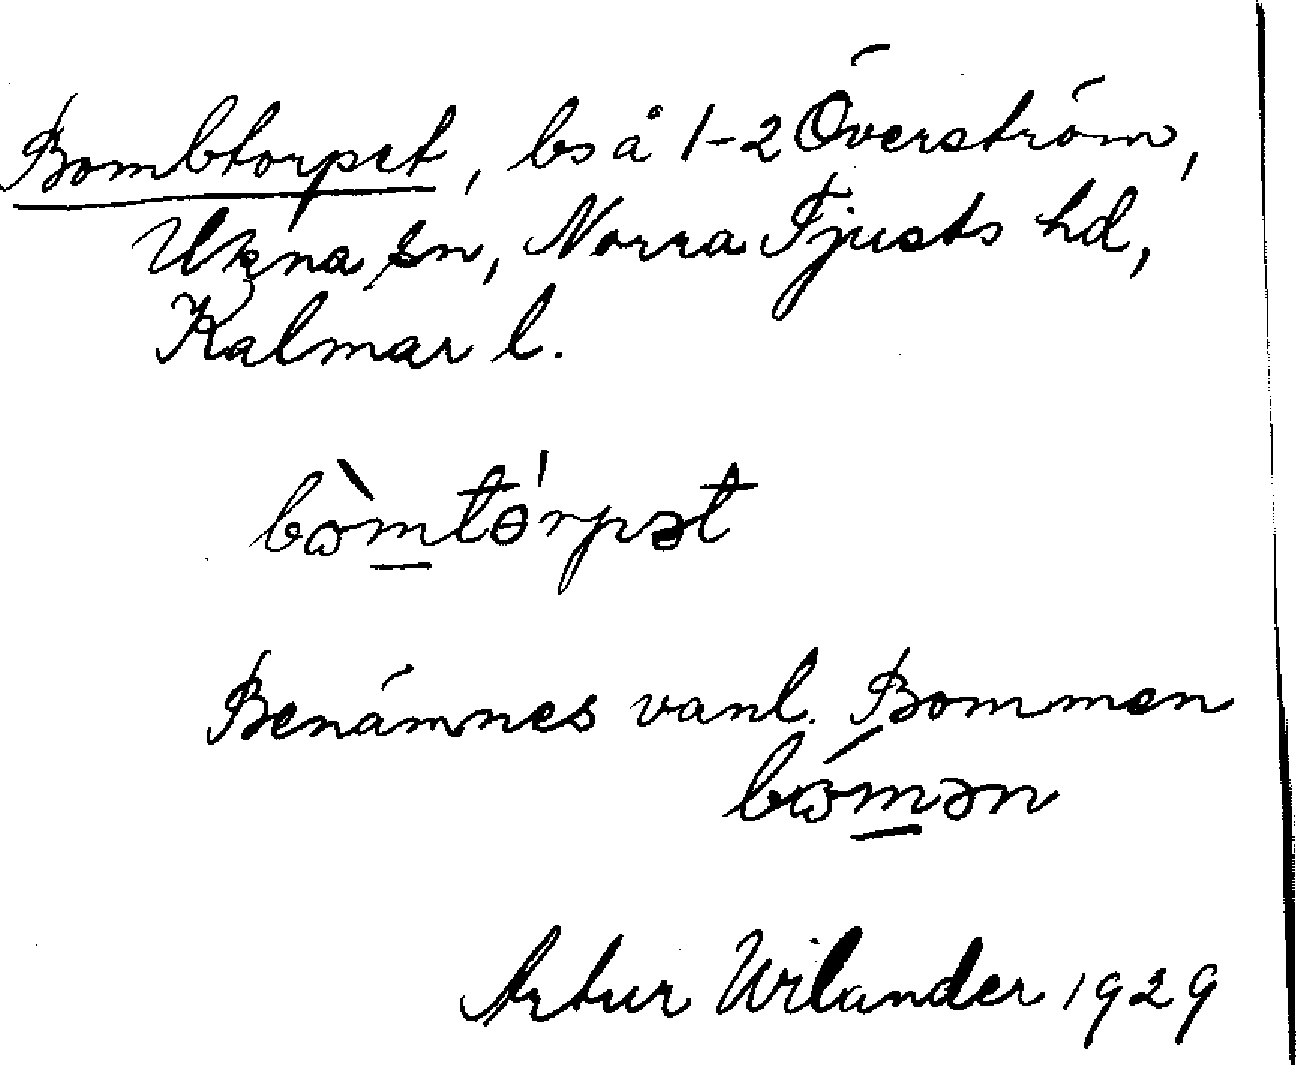 Bombtorpet, bs å 1-2 Överström,
Ukna sn, Norra Tjusts hd,
Kalmar l.
bòmtɵ́rpət
Benämnes vanl. Bommen
bómən
Artur Wilander 1929